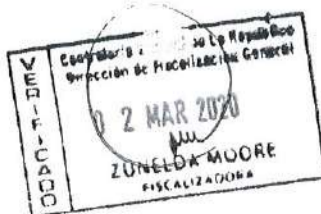 VERIFICADO
Contraloría La República
Dirección de Fiscalización General
2 MAR 2020
ZUNELDA MOORE
FISCALIZADORA